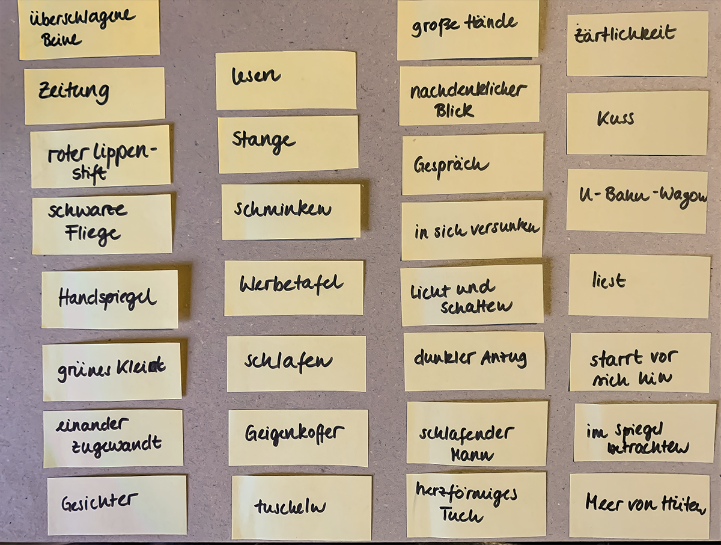 überschlagene
Beine
Zeitung
roter Lippen-
stift
schwarze
Fliege
Handspiegel
grünes Kleid
einander
zugewandt
Gesichter
lesen
Stange
schminken
Werbetafel
schlafen
Geigenkoffer
tuscheln
große Hände
nachdenklicher
Blick
Gespräch
in sich versunken
Licht und
Schatten
dunkler Anzug
schlafender
Mann
herzförmiges
Tuch
Zärtlichkeit
Kuss
U-Bahn-Wagon
liest
starrt vor
sich hin
im Spiegel
betrachten
Meer von Hüten